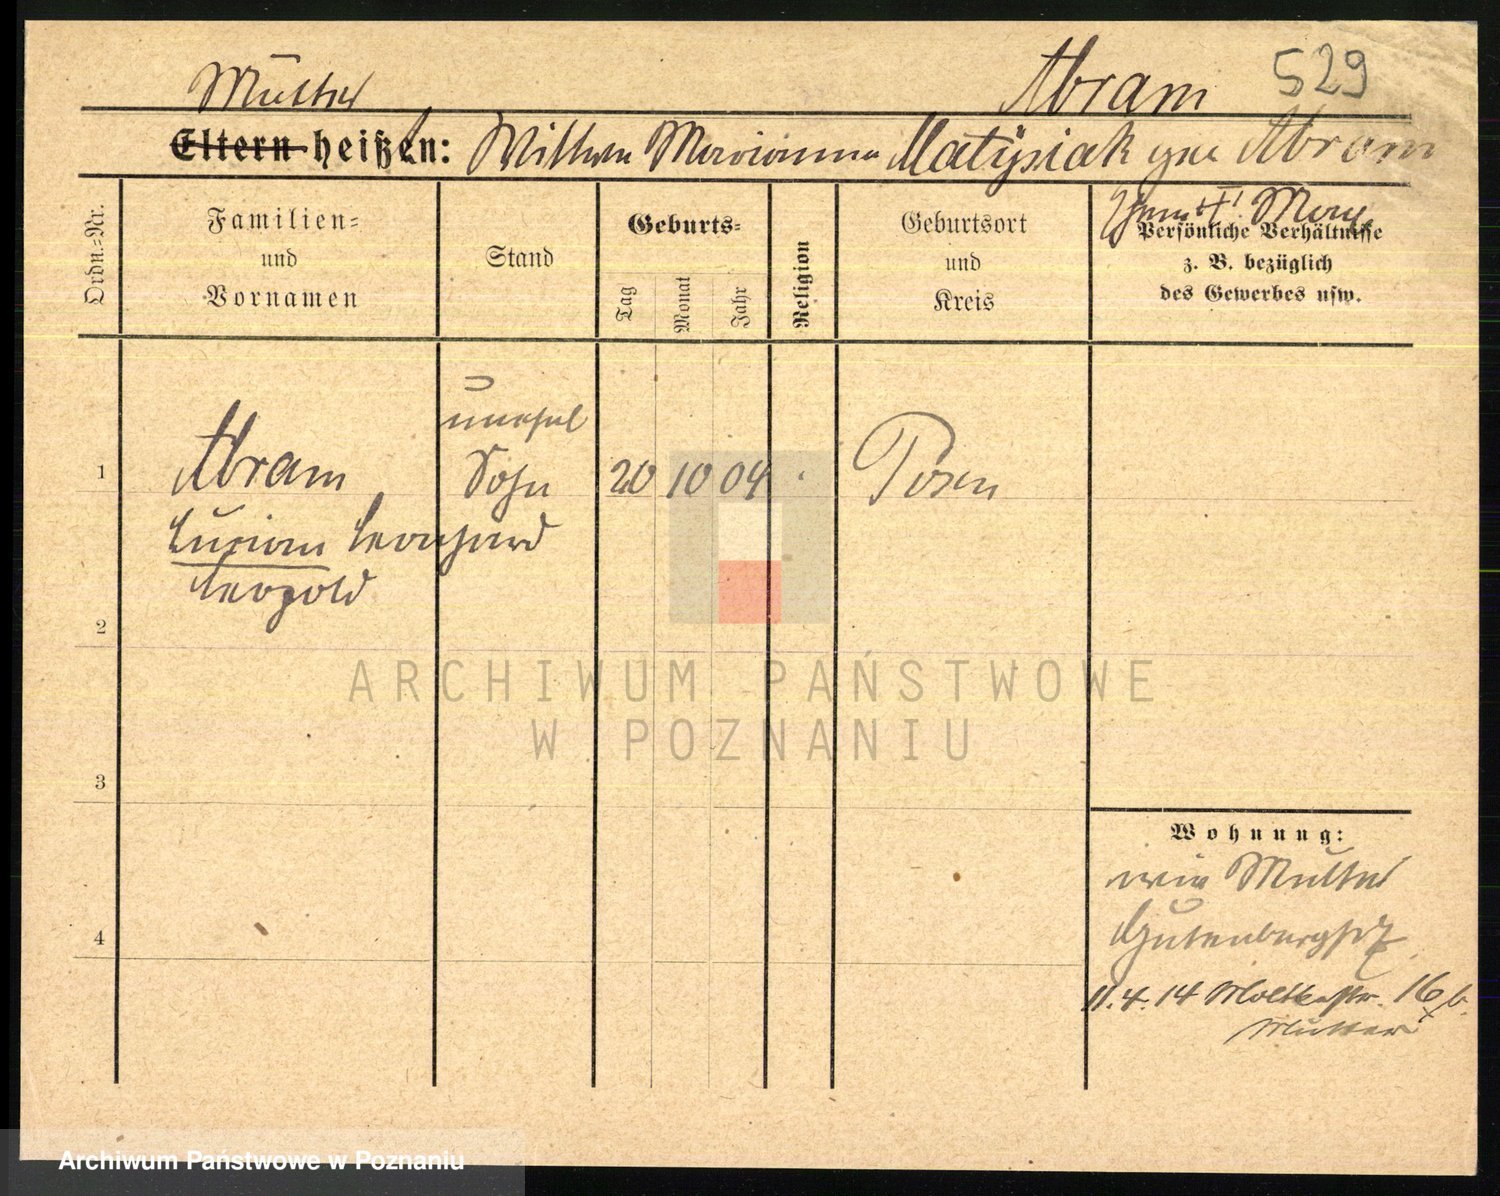 Abram 529
Mutter
Eltern heißt:
Wittwe Marianna Matysiak gen Abram
Ordn=Nr.
Familien=
und
Vornamen
Stand
Geburts=
Tag
Monat
Jahr
Religion
Geburtsort
und
Kreis
Persönliche Verhältnisse
z. B. bezüglich
des Gewerbes usw.
1
Abram
unehel
Sohn
20 10 04
Posen
Lucian Leonhard
Leopold
2
3
4
Wohnung:
wie Mutter
Gutenbergstr
11.4.14 Moltkestr. 16 b.
Mutter
ARCHIWUM PAŃSTWOWE
W POZNANIU
Archiwum Państwowe w Poznaniu